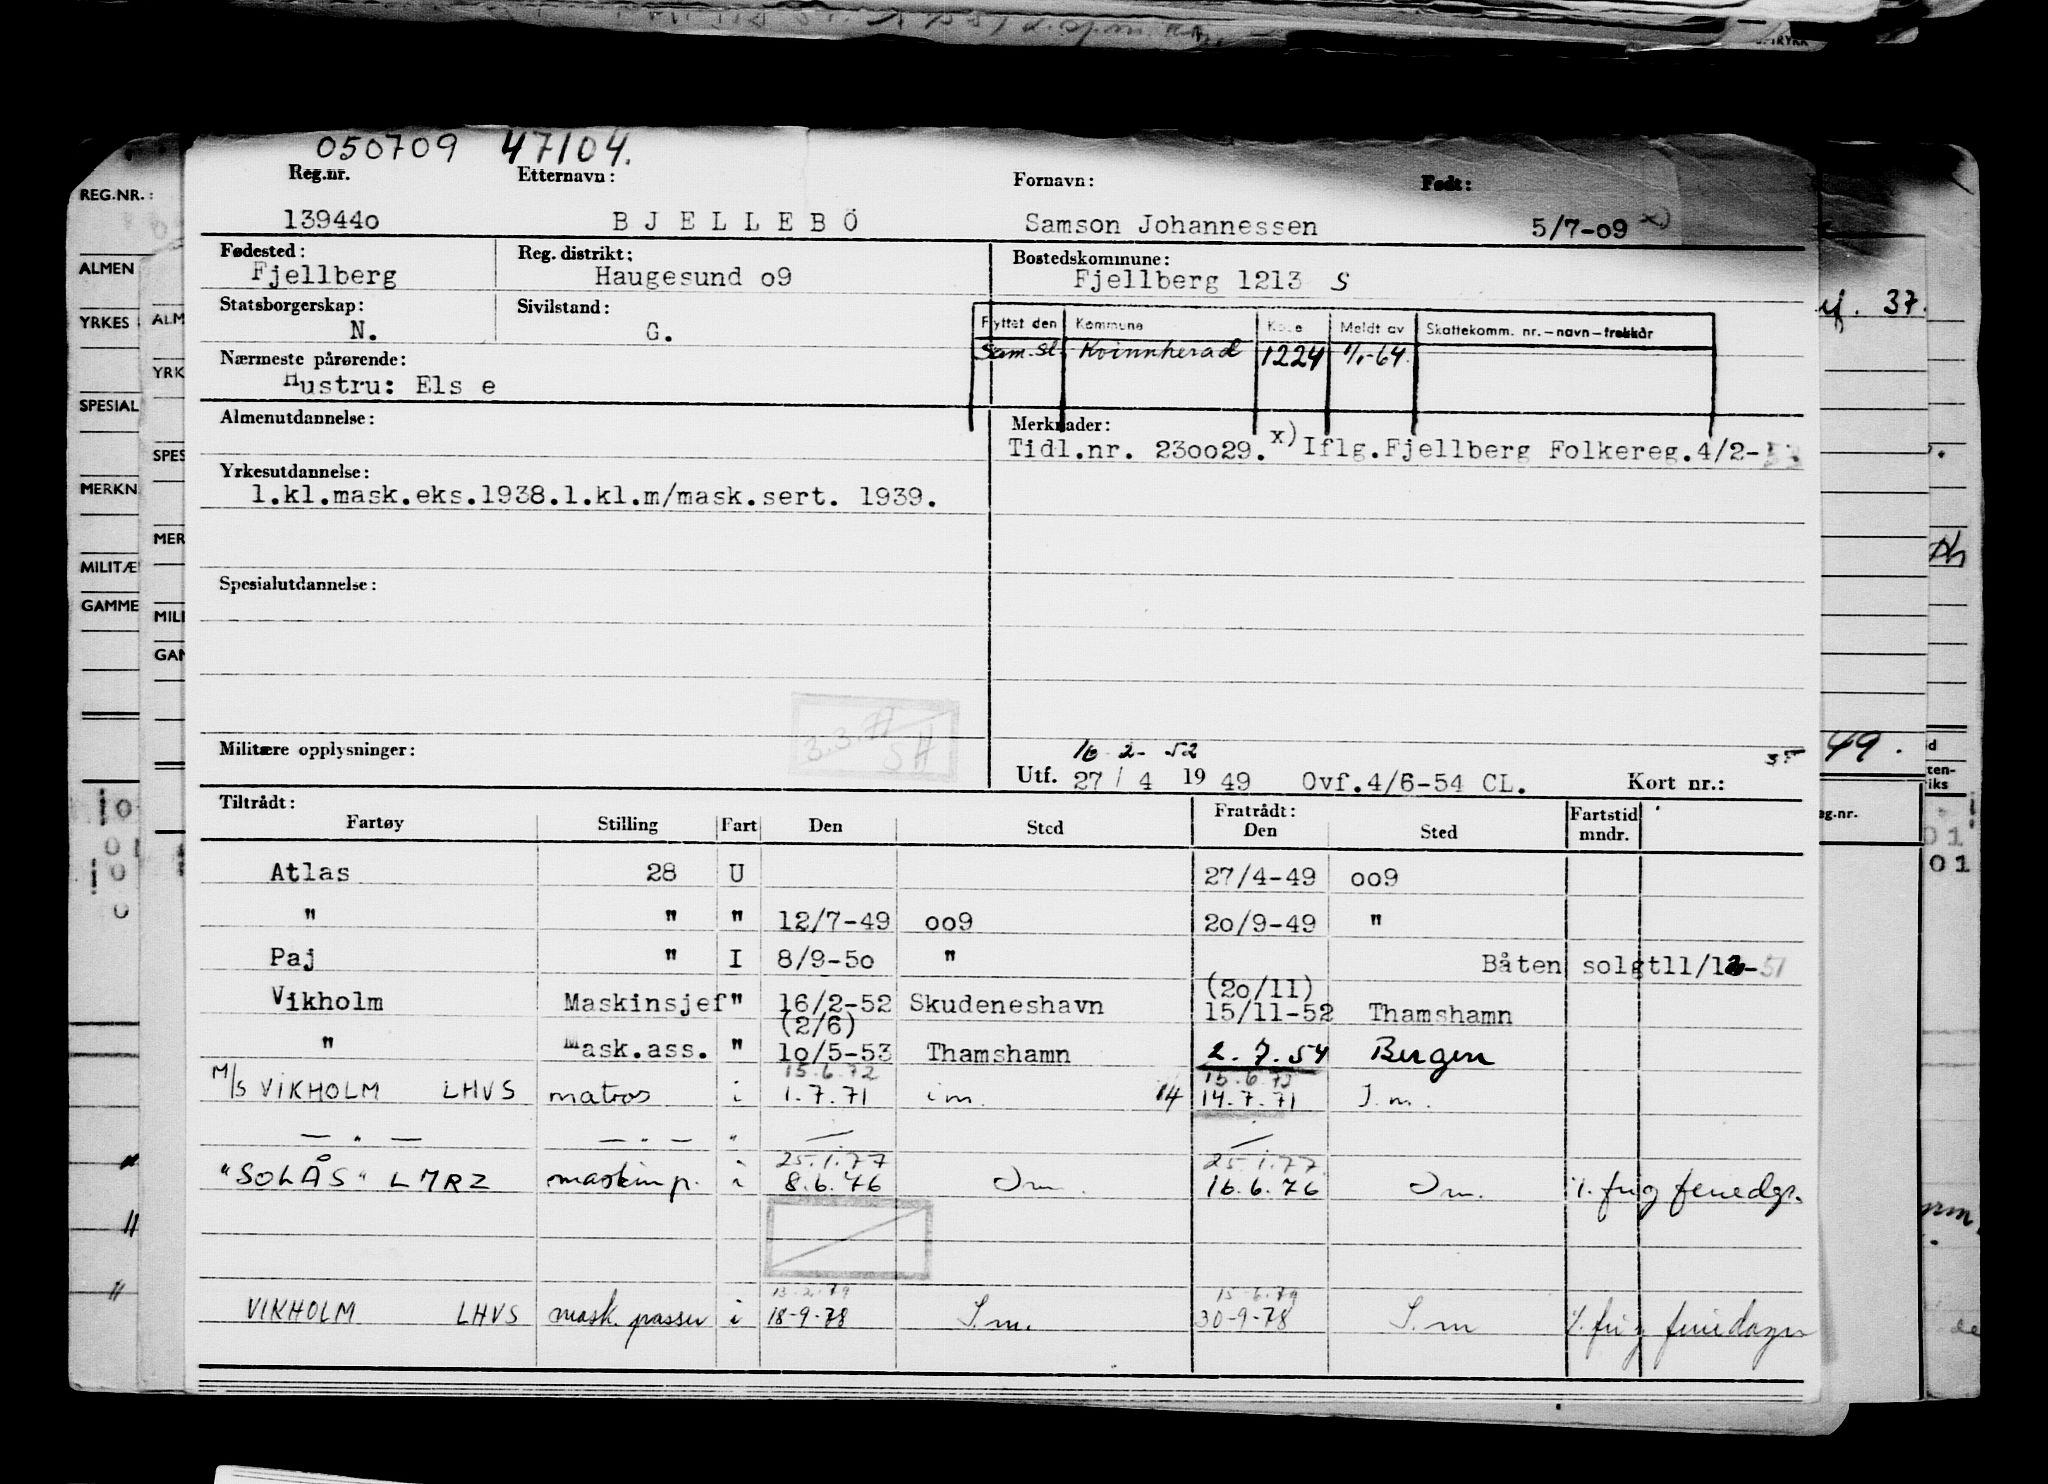 050709 47104.
Reg.nr. Etternavn: Fornavn: Født:
139440 BJELLEBÖ Samson Johannessen 5/7-09 x)
Fødested: Reg. distrikt: Bostedskommune:
Fjellberg Haugesund o9 Fjellberg 1213 S
Statsborgerskap: Sivilstand:
N. G.
Flyttet den Kommune Kode Meldt av Skattekomm. nr.—navn—trekkår
Sam.sl. Kvinnherad 1224 1/1-64.
Nærmeste pårørende:
Hustru: Els e
Almenutdannelse: Merknader:
Tidl.nr. 230029. x) Iflg.Fjellberg Folkereg.4/2-
Yrkesutdannelse:
1.kl.mask.eks.1938.1.kl.m/mask.sert. 1939.
Spesialutdannelse:
3.3.77
SH
Militære opplysninger:
16-2-52
Utf. 27 / 4 19 49 Ovf.4/6-54 CL. Kort nr.:
Tiltrådt: Fratrådt: Fartstid
Fartøy Stilling Fart Den Sted Den Sted mndr.
Atlas 28 U 27/4-49 oo9
" " " 12/7-49 oo9 20/9-49 "
Paj " I 8/9-50 " Båten solgt 11/12-51
(20/11)
Vikholm Maskinsjef " 16/2-52 Skudeneshavn 15/11-52 Thamshamn
(2/6)
" Mask.ass. " 10/5-53 Thamshamn 2.7.54 Bergen
15.6.72 15.6.72
M/S VIKHOLM LHVS matros i 1.7.71 i m. 14 14.7.71 I.m.
— " — — " — "
25.1.77 25.1.77
"SOLÅS" LMRZ maskinp. i 8.6.76 I m. 16.6.76 I m. 1. fri g feriedgr.
13.2.79 15.6.79
VIKHOLM LHVS mask. passer i 18-9-78 I.m. 30-9-78 I.m 1. fri g feriedager
REG.NR.:
ALMEN
YRKES
SPESIAL
MERKN
MILITÆ
GAMME
ALM
YRK
SPES
MER
MILI
GAM
37.
49.